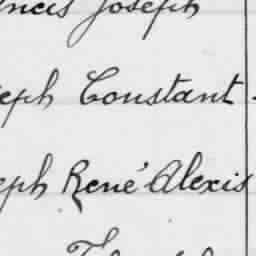 ncis Joseph
eph Constant
eph René Alexis